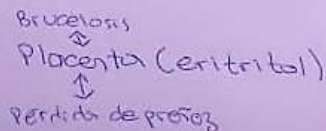 Brucelosis
↕
Placenta (eritritol)
↕
Pérdida de preñez